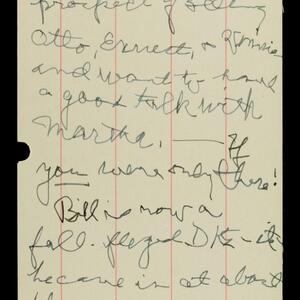 prospect of seeing
Otto, Ernest, &
and want to have
a good talk with
Martha. — If
you were only there!
Bill is now a
full-fleged DKE — it
became in at about